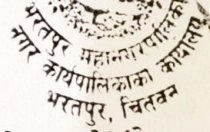 भरतपुर महानगरपालिका
नगर कार्यपालिकाको कार्यालय
भरतपुर, चितवन